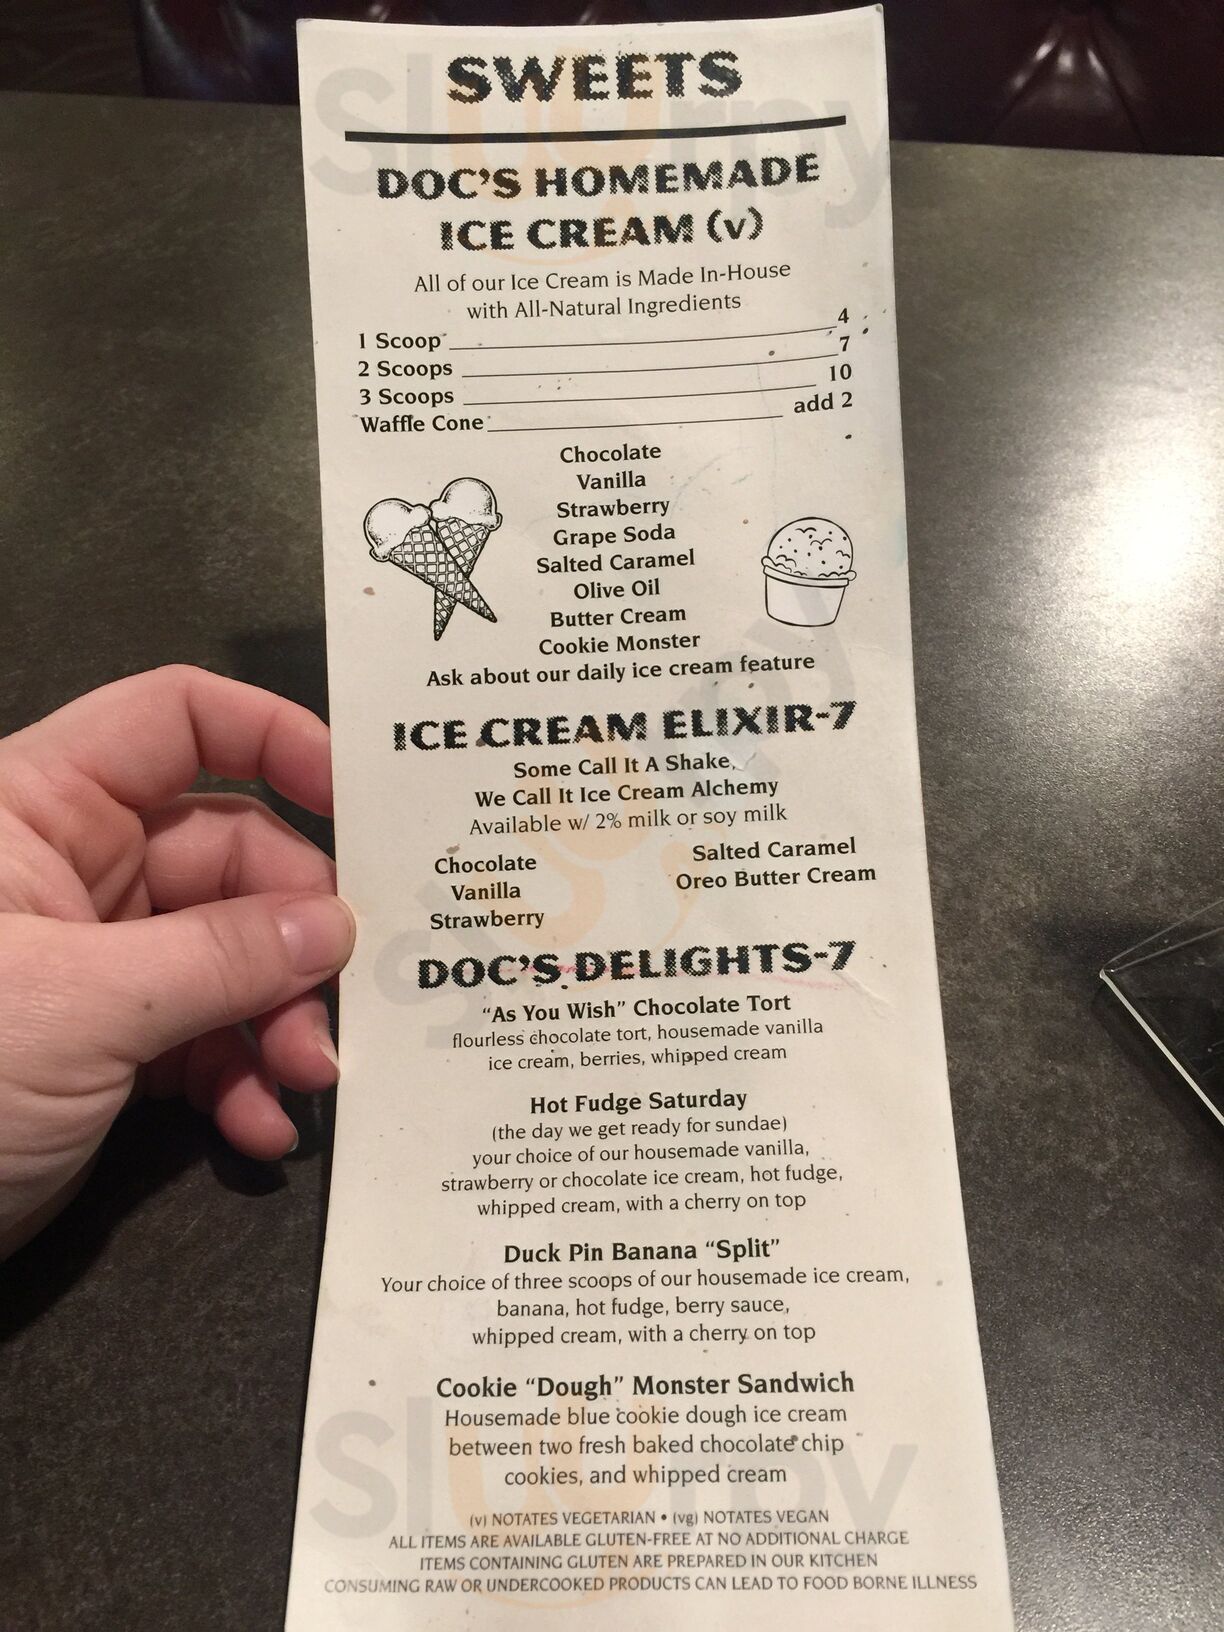 SWEETS
DOC'S HOMEMADE
ICE CREAM (v)
All of our Ice Cream is Made In-House
with All-Natural Ingredients
1 Scoop 4
2 Scoops 7
3 Scoops 10
Waffle Cone add 2
Chocolate
Vanilla
Strawberry
Grape Soda
Salted Caramel
Olive Oil
Butter Cream
Cookie Monster
Ask about our daily ice cream feature
ICE CREAM ELIXIR-7
Some Call It A Shake,
We Call It Ice Cream Alchemy
Available w/ 2% milk or soy milk
Chocolate
Vanilla
Strawberry
Salted Caramel
Oreo Butter Cream
DOC'S DELIGHTS-7
"As You Wish" Chocolate Tort
flourless chocolate tort, housemade vanilla
ice cream, berries, whipped cream
Hot Fudge Saturday
(the day we get ready for sundae)
your choice of our housemade vanilla,
strawberry or chocolate ice cream, hot fudge,
whipped cream, with a cherry on top
Duck Pin Banana "Split"
Your choice of three scoops of our housemade ice cream,
banana, hot fudge, berry sauce,
whipped cream, with a cherry on top
Cookie "Dough" Monster Sandwich
Housemade blue cookie dough ice cream
between two fresh baked chocolate chip
cookies, and whipped cream
(v) NOTATES VEGETARIAN • (vg) NOTATES VEGAN
ALL ITEMS ARE AVAILABLE GLUTEN-FREE AT NO ADDITIONAL CHARGE
ITEMS CONTAINING GLUTEN ARE PREPARED IN OUR KITCHEN
CONSUMING RAW OR UNDERCOOKED PRODUCTS CAN LEAD TO FOOD BORNE ILLNESS
Slurrpy
Slurrpy
Slurrpy